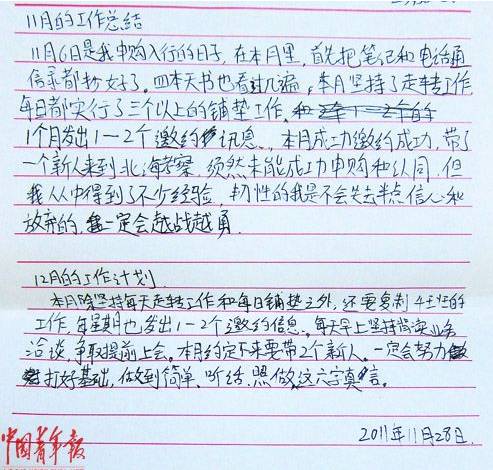 11月的工作总结
11月6日是我申购入行的日子，在本月里，首先把笔记和电话通
信录都抄好了。四本天书也看过几遍，本月坚持了走转工作
每日都实行了三个以上的铺垫工作。
1个月发出1—2个邀约讯息。本月成功邀约成功，带了
一个新人来到北海考察，须然未能成功申购和认同，但
我从中得到了不少经验，韧性的我是不会失去半点信心和
放弃的，我一定会越战越勇.
12月的工作计划
本月除坚持每天走转工作和每日铺垫之外，还要复制4主性的
工作，每星期也发出1—2个邀约信息。每天早上坚持尚实业务
洽谈，争取提前上会。本月约定下来要带2个新人。一定会努力做
打好基础，做到简单、听话、照做，这六字真言。
2011年11月28日.
中国青年报